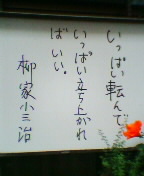 いっぱい転んで
いっぱい立ち上がれ
ばいい。
柳家小三治